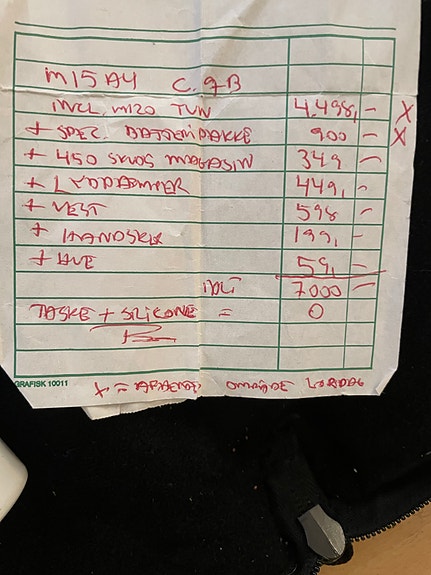 M15 A4 C.QB
INCL. M120 TUN 4.498,- X
+ SPEC. BATTERIPAKKE 900 - X
+ 450 SKUDS MAGASIN 349, -
+ LYDDÆMPER 449, -
+ VEST 598 -
+ HANDSKER 199, -
+ HUE 59, -
IALT 7000 -
TASKE + SILICONE = 0
GRAFISK 10011
X = LØRDAG